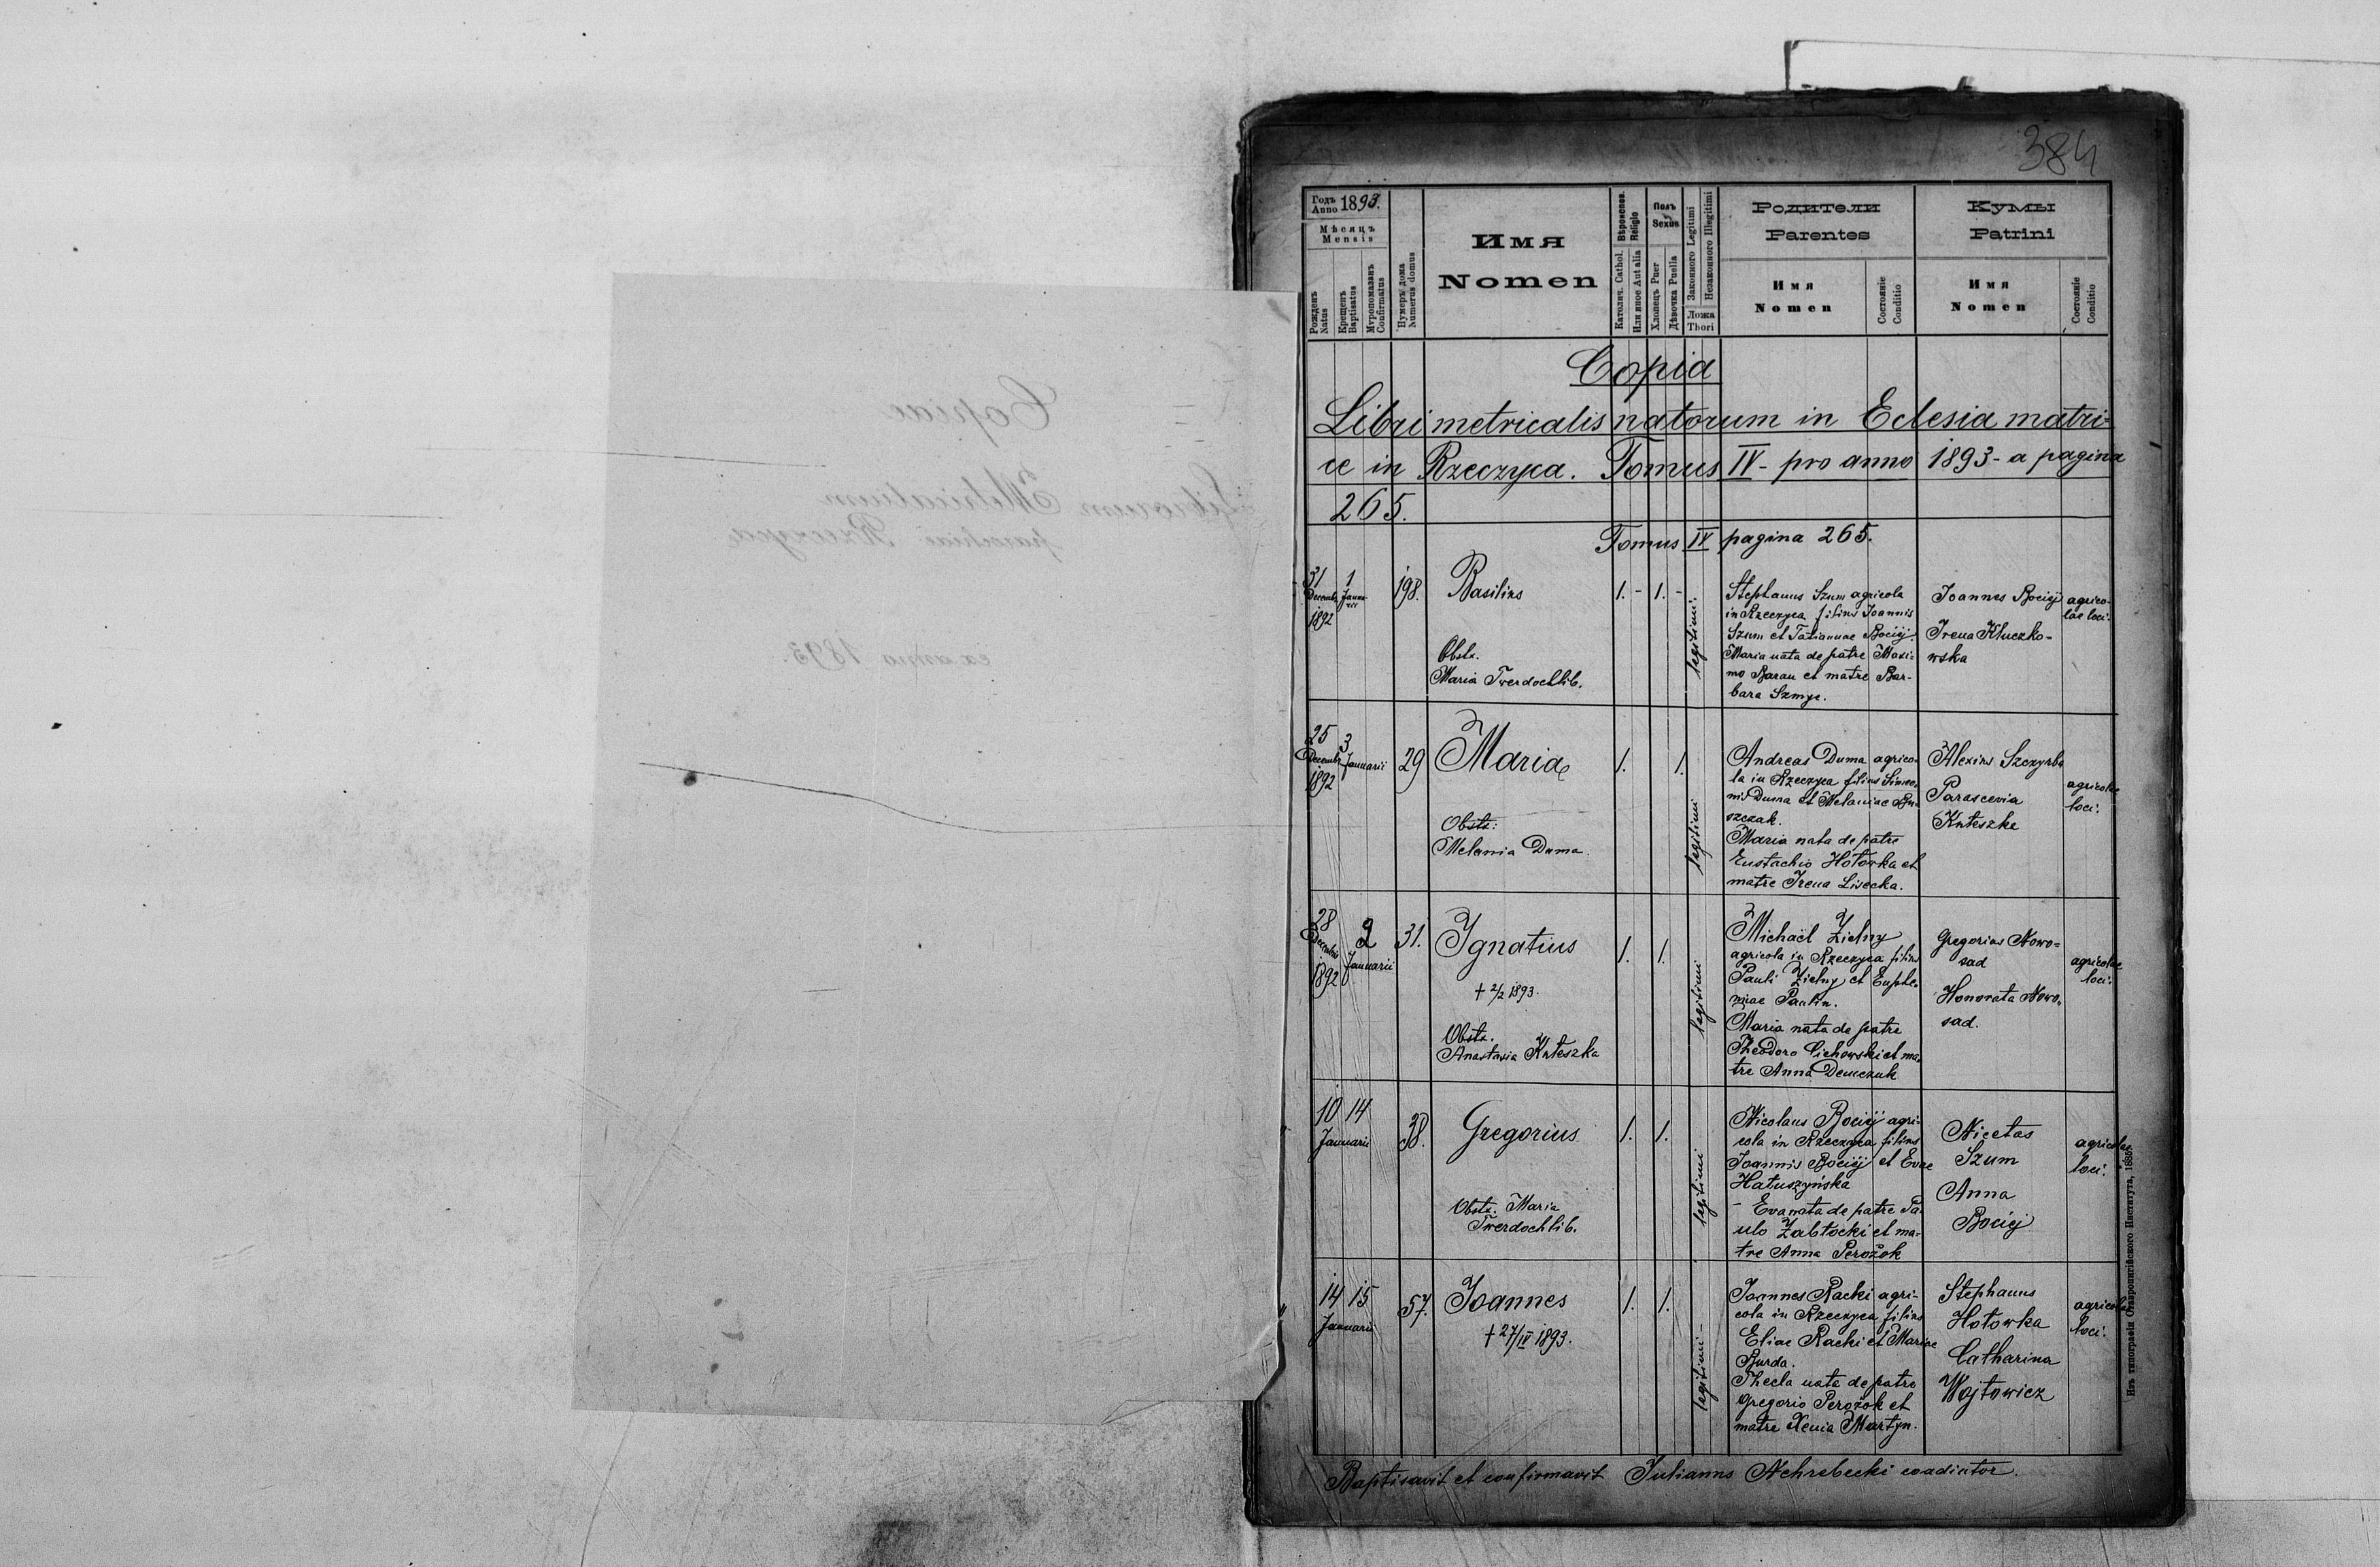 384
Годъ Anno 1893.
Мѣсяцъ
Mensis
Рожденъ
Natus
Крещенъ
Baptisatus
Муропомазанъ
Confirmatus
Нумеръ дома
Numerus domus
Имя
Nomen
Вѣроиспов.
Religio
Католич. Cathol.
Или иное Aut alia
Полъ
Sexus
Хлопецъ Puer
Дѣвочка Puella
Законного Legitimi
Незаконного Illegitimi
Ложа
Thori
Родители
Parentes
Имя
Nomen
Состояніе
Conditio
Кумы
Patrini
Имя
Nomen
Состояніе
Conditio
Copia
Libri metricalis natorum in Eclesia matri-
ce in Rzeczyca. Tomus IV - pro anno 1893 - a pagina
265.
Tomus IV pagina 265.
31
Decembr
1892
1
Janua-
rii
198.
Basilius
Obstr.
Maria Twerdochlib.
1. - 1. -
legitimi.
Stephanus Szum agricola
in Rzeczyca filius Joannis
Szum et Tatiannae Bociój.
Maria nata de patre Maxi-
mo Baran et matre Bar-
bara Szmyc.
Joannes Bociój
Irena Kluczko-
wska
agrico-
lae loci.
25
Decembr
1892
3
Januarii
29
Maria
Obstr:
Melania Duma.
1. 1.
legitimi
Andreas Duma agrico-
la in Rzeczyca filius Simeo-
nis Duma et Melaniae
szczak.
Maria nata de patre
Eustachio Hotowka et
matre Irena Lisecka.
Alexius Szczyrba
Parascevia
Kuteszka
agricolae
loci.
28
Decembris
1892
2
Januarii
31.
Ignatius
+ 2/2 1893.
Obstr.
Anastasia Kuteszka
1. 1.
legitimi
Michaël Zielny
agricola in Rzeczyca filius
Pauli Zielny et Euphe-
miae Pautin.
Maria nata de patre
Theodoro Cichowski et ma-
tre Anna Demczuk
Gregorius Nowo-
sad
Honorata Nowo-
sad.
agricolae
loci.
10 14
Januarii
38.
Gregorius
Obstr. Maria
Twerdochlib.
1. 1.
legitimi
Nicolaus Bociój agri-
cola in Rzeczyca filius
Joannis Bociój et Evae
Hatuszyńska
- Eva nata de patre Pa-
ulo Zabłocki et ma-
tre Anna Perożok
Nicetas
Szum
Anna
Bociój
agricolae
loci.
14 15
Januarii
57.
Joannes
+ 27/IV 1893.
1. 1.
legitimi -
Joannes Racki agri-
cola in Rzeczyca filius
Eliae Racki et Mariae
Burda.
Thecla nata de patre
Gregorio Perożok et
matre Xenia Martyn.
Stephanus
Hotowka
Catharina
Wojtowicz
agricolae
loci.
Baptisavit et confirmavit Julianus Nehrebecki coadiutor.
Изъ типографіи Ставропигійского Института, 1885.
Copiae
Librorum Metricalium
parochiae Rzeczyca
ex anno 1893.